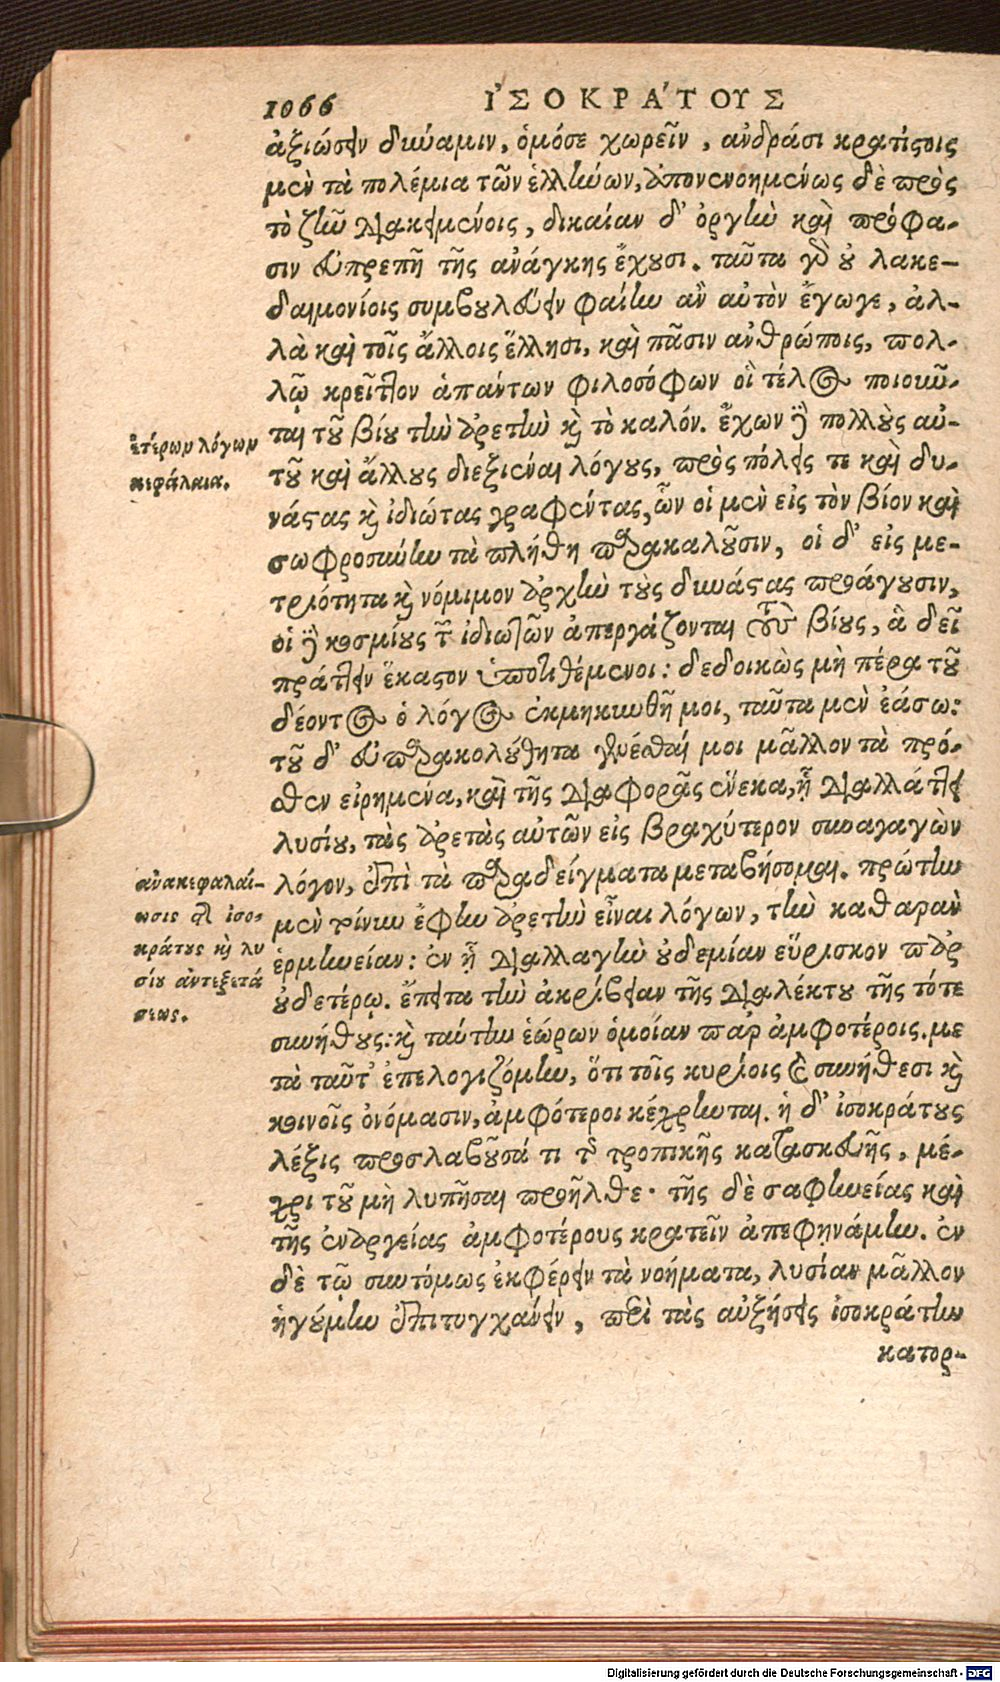 1066
ἸΣΟΚΡΑ΄ΤΟΥΣ
ἀξιώσειν δύναμιν, ὁμόσε χωρεῖν, ἀνδράσι κρατίστοις
μὲν τὰ πολέμια τῶν ἑλλήνων, ἀπονενοημένως δὲ πρὸς
τὸ ζῆν διακειμένοις, δικαίαν δ' ὀργὴν καὶ πρόφα-
σιν εὐπρεπῆ τῆς ἀνάγκης ἔχουσι. ταῦτα γὰρ οὐ λακε-
δαιμονίοις συμβουλεύειν φαίην ἂν αὐτὸν ἔγωγε, ἀλ-
λὰ καὶ τοῖς ἄλλοις ἕλλησι, καὶ πᾶσιν ἀνθρώποις, πολ-
λῷ κρεῖττον ἁπάντων φιλοσόφων οἳ τέλος ποιοῦν-
ται τοῦ βίου τὴν ἀρετὴν καὶ τὸ καλόν. ἔχων δὲ πολλοὺς αὐ-
τοῦ καὶ ἄλλους διεξιέναι λόγους, πρὸς πόλεις τε καὶ δυ-
νάστας καὶ ἰδιώτας γραφέντας, ὧν οἱ μὲν εἰς τὸν βίον καὶ
σωφροσύνην τὰ πλήθη παρακαλοῦσιν, οἱ δ' εἰς με-
τριότητα καὶ νόμιμον ἀρχὴν τοὺς δυνάστας προάγουσιν,
οἱ δὲ κοσμίους τῶν ἰδιωτῶν ἀπεργάζονται τοὺς βίους, ἃ δεῖ
πράττειν ἕκαστον ὑποτιθέμενοι: δεδοικὼς μὴ πέρα τοῦ
δέοντος ὁ λόγος ἐκμηκυνθῇ μοι, ταῦτα μὲν ἐάσω:
τοῦ δ' εὐπαρακολούθητα γενέσθαι μοι μᾶλλον τὰ πρό-
σθεν εἰρημένα, καὶ τῆς διαφορᾶς ἕνεκα, ᾗ διαλλάττει
λυσίου, τὰς ἀρετὰς αὐτῶν εἰς βραχύτερον συναγαγὼν
λόγον, ἐπὶ τὰ παραδείγματα μεταβήσομαι. πρώτην
μὲν τοίνυν ἔφην ἀρετὴν εἶναι λόγων, τὴν καθαρὰν
ἑρμηνείαν: ἐν ᾗ διαλλαγὴν οὐδεμίαν εὕρισκον παρ'
οὐδετέρῳ. ἔπειτα τὴν ἀκρίβειαν τῆς διαλέκτου τῆς τότε
συνήθους: καὶ ταύτην ἑώρων ὁμοίαν παρ' ἀμφοτέροις. με
τὰ ταῦτ' ἐπελογιζόμην, ὅτι τοῖς κυρίοις καὶ συνήθεσι καὶ
κοινοῖς ὀνόμασιν, ἀμφότεροι κέχρηνται. ἡ δ' ἰσοκράτους
λέξις προσλαβοῦσά τι τῆς τροπικῆς κατασκευῆς, μέ-
χρι τοῦ μὴ λυπῆσαι προῆλθε· τῆς δὲ σαφηνείας καὶ
τῆς ἐναργείας ἀμφοτέρους κρατεῖν ἀπεφηνάμην. ἐν
δὲ τῷ συντόμως ἐκφέρειν τὰ νοήματα, λυσίαν μᾶλλον
ἡγούμην ἐπιτυγχάνειν, περὶ τὰς αὐξήσεις ἰσοκράτην
κατορ-
ἑτέρων λόγων
κεφάλαια.
ἀνακεφαλαί-
ωσις τῆς ἰσο-
κράτους καὶ λυ
σίου ἀντεξετά
σεως.
Digitalisierung gefördert durch die Deutsche Forschungsgemeinschaft - DFG